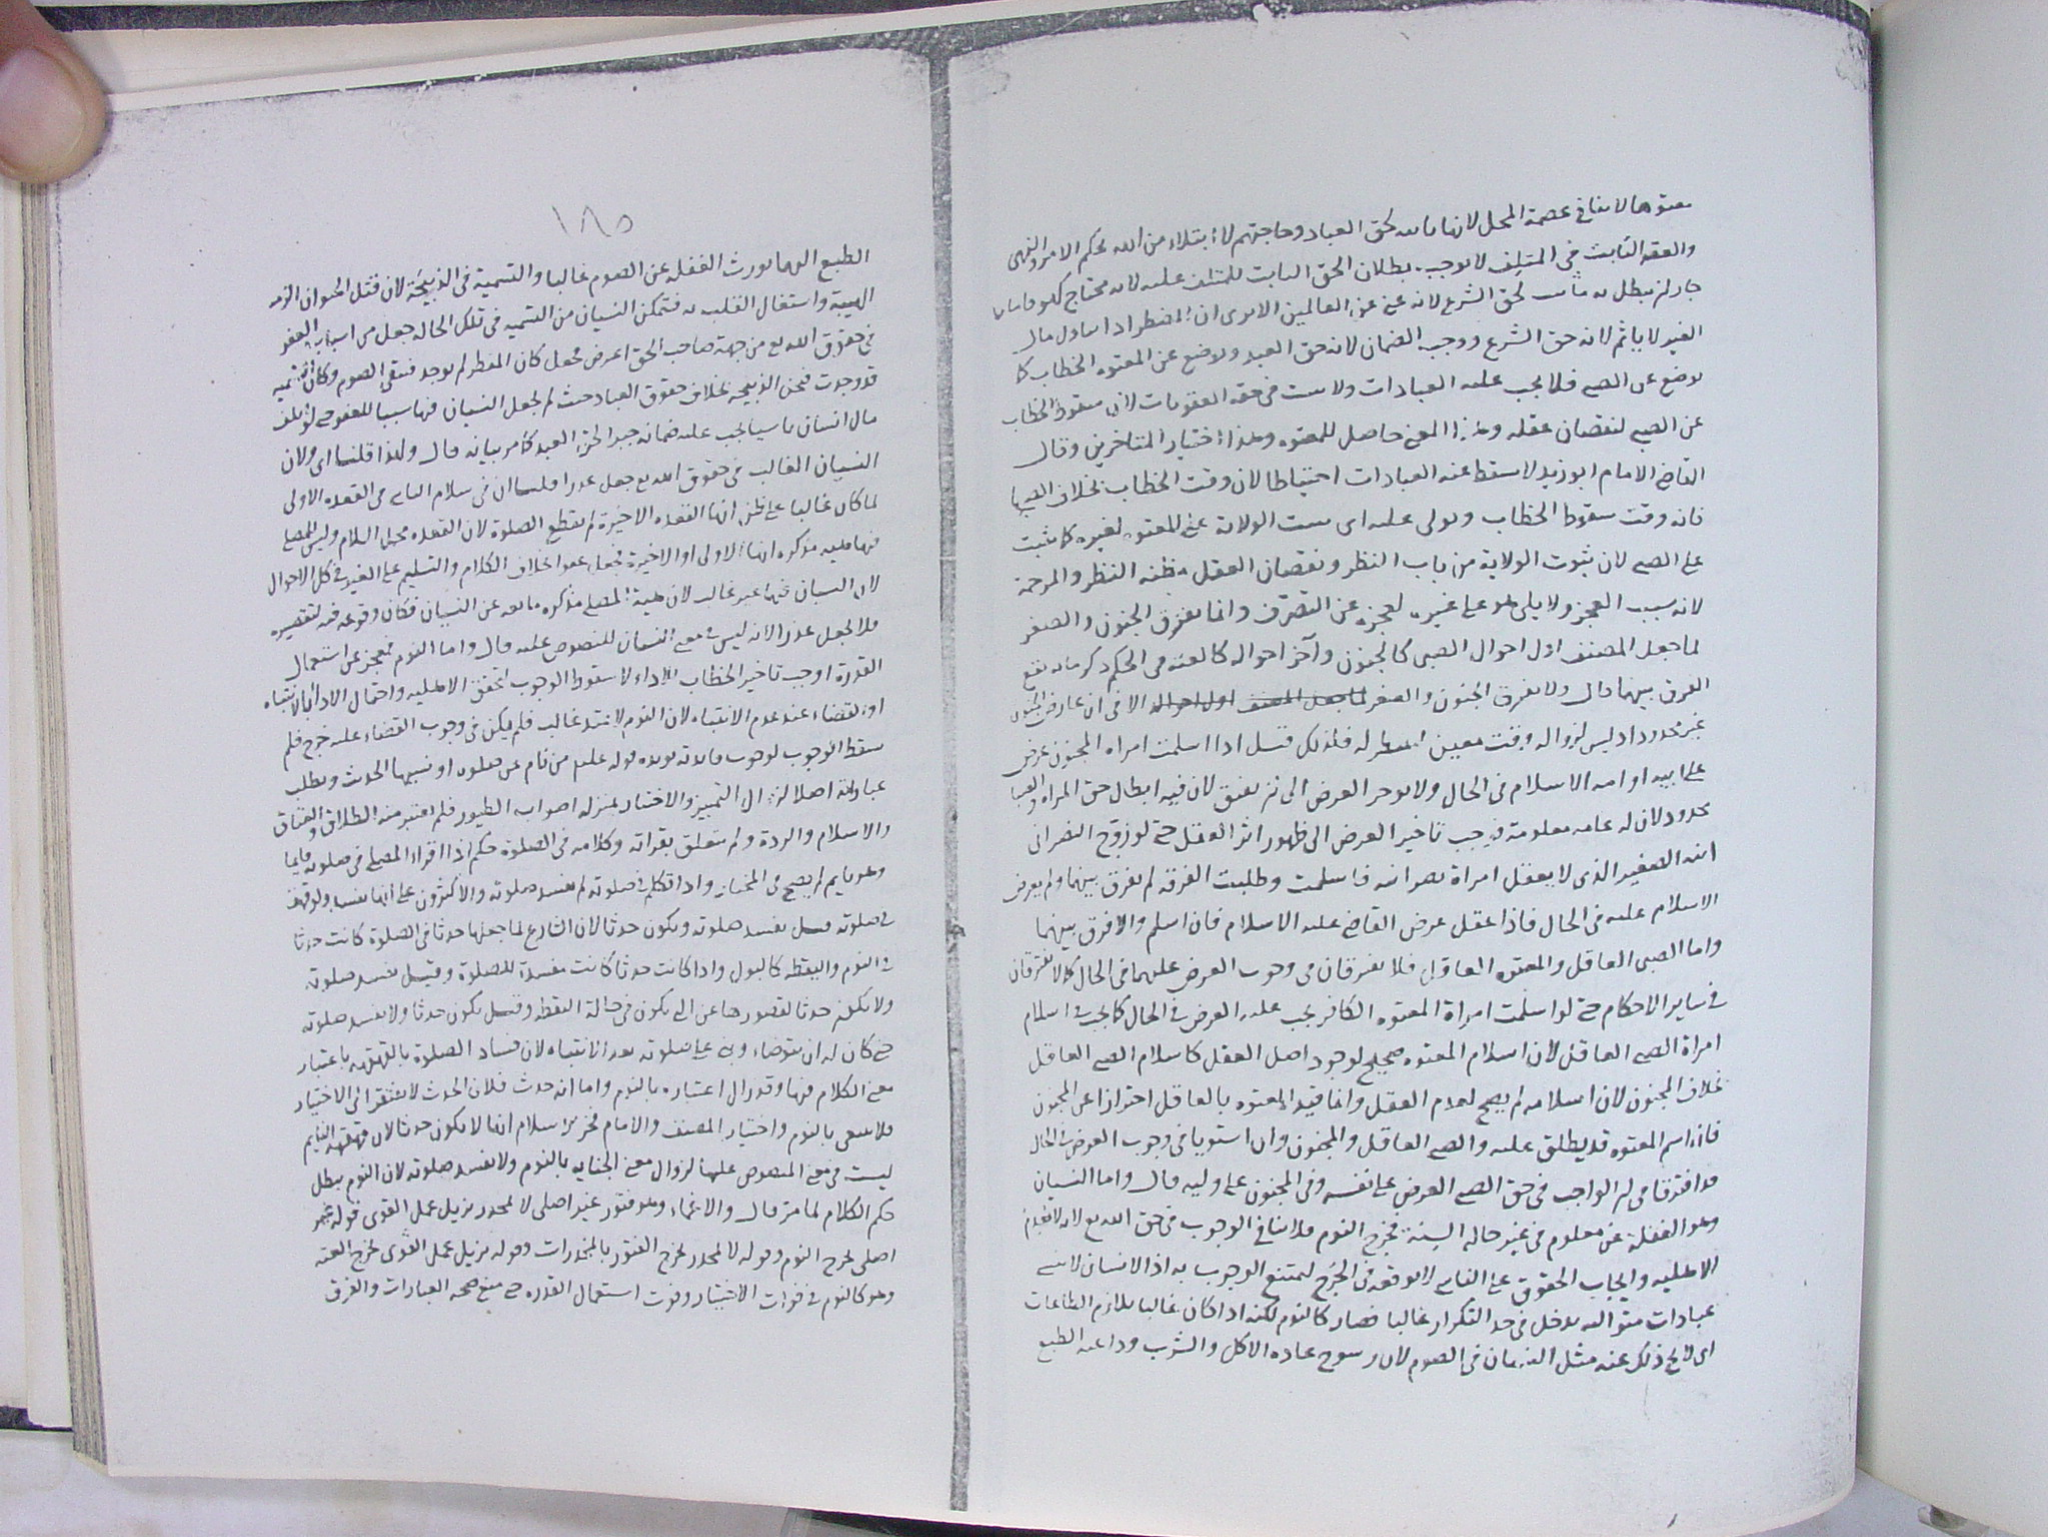 معتوها لا ينافي عصمة المحل لانها ثابتة لحق العباد وحاجتهم لا ابتلاء من الله بحكم الامر والنهي
والعقد الثابت في المتلف لا يوجب بطلان الحق الثابت للمتلف عليه لانه محتاج
جاز ان يبطل به ما ثبت لحق الشرع لانه غني عن العالمين الا يرى ان المضطر اذا تناول مال
الغير لا ياثم لانه حق الشرع ووجب الضمان لانه حق العبد ويوضع عن المعتوه الخطاب كما
يوضع عن الصبي فلا يجب عليه العبادات ولا يثبت في حقه العقوبات لان سقوط الخطاب
عن الصبي لنقصان عقله وهذا المعنى حاصل للمعتوه وهذا اختيار المتاخرين وقال
القاضي الامام ابو زيد لا يسقط عنه العبادات احتياطا لان وقت الخطاب بخلاف الصبا
فانه وقت سقوط الخطاب ويولى عليه اي يثبت الولاية على المعتوه لغيره كما يثبت
على الصبي لان ثبوت الولاية من باب النظر ونقصان العقل مظنة النظر والمرحمة
لانه سبب العجز ولا يلي هو على غيره لعجزه عن التصرف وانما يفرق الجنون والصغر
لما جعل المصنف اول احوال الصبي كالجنون وآخر احواله كالعته في الحكم ذكر ما به يقع
الفرق بينهما قال ولا يفرق الجنون والصغر لما جعل المصنف اول احواله الا في ان عارض الجنون
غير محدود اذ ليس لزواله وقت معين ينتظر له فلذلك قيل اذا اسلمت امراة المجنون عرض
على ابيه او امه الاسلام في الحال ولا يوخر العرض الى ان يفيق لان فيه ابطال حق المراة والصبا
محدود لان له غاية معلومة فيجب تاخير العرض الى ظهور اثر العقل حتى لو زوج النصراني
ابنه الصغير الذي لا يعقل امراة نصرانية فاسلمت وطلبت الفرقة لم يفرق بينهما ولم يعرض
الاسلام عليه في الحال فاذا عقل عرض القاضي عليه الاسلام فان اسلم والا فرق بينهما
واما الصبي العاقل والمعتوه العاقل فلا يفترقان في وجوب العرض عليهما في الحال كما لا يفترقان
في ساير الاحكام حتى لو اسلمت امراة المعتوه الكافر يجب عليه العرض في الحال كما يجب في اسلام
امراة الصبي العاقل لان اسلام المعتوه صحيح لوجود اصل العقل كاسلام الصبي العاقل
بخلاف المجنون لان اسلامه لم يصح لعدم العقل وانما قيد المعتوه بالعاقل احترازا عن المجنون
فان اسم المعتوه قد يطلق عليه والصبي العاقل والمجنون وان استويا في وجوب العرض في الحال
قد افترقا في ان الواجب في حق الصبي العرض على نفسه وفي المجنون على وليه قال واما النسيان
وهو الغفلة عن معلوم في غير حالة السنة فخرج النوم فلا ينافي الوجوب في حق الله تع لانه لا يعدم
الاهلية وايجاب الحقوق على الناسي لا يوقعه في الحرج ليمتنع الوجوب به اذ الانسان لا ينسى
عبادات متوالية يدخل في حد التكرار غالبا فصار كالنوم لكنه اذا كان غالبا يلازم الطاعات
اي لا يخ ذلك عنه مثل النسيان في الصوم لان رسوخ عادة الاكل والشرب وداعية الطبع
١٨٥
الطبع اليهما يورث الغفلة عن الصوم غالبا والتسمية في الذبيحة لان قتل الحيوان
الهيبة واشتغال القلب به فتمكن النسيان من التسمية في تلك الحالة جعل من اسباب العفو
في حقوق الله تع من جهة صاحب الحق اعرض فجعل كان المفطر لم يوجد فبقي الصوم وكان التسمية
قد وجدت فتحل الذبيحة بخلاف حقوق العباد حيث لم يجعل النسيان فيها سببا للعفو حتى لو اتلف
مال انسان ناسيا يجب عليه ضمانه جبرا لحق العبد كما مر بيانه قال ولهذا قلنا اي ولان
النسيان الغالب في حقوق الله تع جعل عذرا قلنا ان في سلام الناسي في القعدة الاولى
لما كان غالبا على ظن انها القعدة الاخيرة لم يقطع الصلوة لان القعدة محل السلام وليس للمصلي
فيها هيئة مذكرة انها الاولى او الاخيرة فجعل عفوا بخلاف الكلام والتسليم على الغير في كل الاحوال
لان النسيان فيها غير غالب لان هيئة المصلي مذكرة مانعة عن النسيان فكان وقوعه فيه لتقصيره
فلا يجعل عذرا لانه ليس في معنى النسيان المنصوص عليه قال واما النوم فعجز عن استعمال
القدرة اوجب تاخير الخطاب للاداء لا سقوط الوجوب لتحقق الاهلية واحتمال الاداء بالانتباه
او القضاء عند عدم الانتباه لان النوم لا يمتد غالب فلم يكن في وجوب القضاء عليه حرج فلم
يسقط الوجوب لوجوب فايدته يؤيده قوله عليه من نام عن صلوة او نسيها الحديث ويبطل
عباراته اصلا لزوال التمييز والاختيار بمنزلة اصوات الطيور فلم يعتبر منه الطلاق والعتاق
والاسلام والردة ولم يتعلق بقراته وكلامه في الصلوة حكم اذا اقراء المصلي في صلوته قايما
وهو نايم لم يصح في المختار واذا تكلم في صلوته لم يفسد صلوته والاكثرون على انها يفسد ولو قهقه
في صلوته قيل يفسد صلوته ويكون حدثا لان الشارع لما جعلها حدثا في الصلوة كانت حدثا
في النوم واليقظة كالبول واذا كانت حدثا كانت مفسدة للصلوة وقيل يفسد صلوته
ولا يكون حدثا لقصورها عن التي يكون في حالة اليقظة وقيل يكون حدثا ولا يفسد صلوته
حتى كان له ان يتوضاء ويبني على صلوته بعد الانتباه لان فساد الصلوة بالقهقهة باعتبار
معنى الكلام فيها وقد زال اعتباره بالنوم واما انه حدث فلان الحدث لا يفتقر الى الاختيار
فلا ينتفي بالنوم واختيار المصنف والامام فخر الاسلام انها لا يكون حدثا لان قهقهة النايم
ليست في معنى المنصوص عليها لزوال معنى الجناية بالنوم ولا يفسد صلوته لان النوم يبطل
حكم الكلام لما مر قال والاغماء وهو فتور غير اصلي لا بمخدر يزيل عمل القوى قوله غير
اصلي يخرج النوم وقوله لا بمخدر يخرج الفتور بالمخدرات وقوله يزيل عمل القوى يخرج العته
وهو كالنوم في فوات الاختيار وفوت استعمال القدرة حتى منع صحة العبارات والفرق